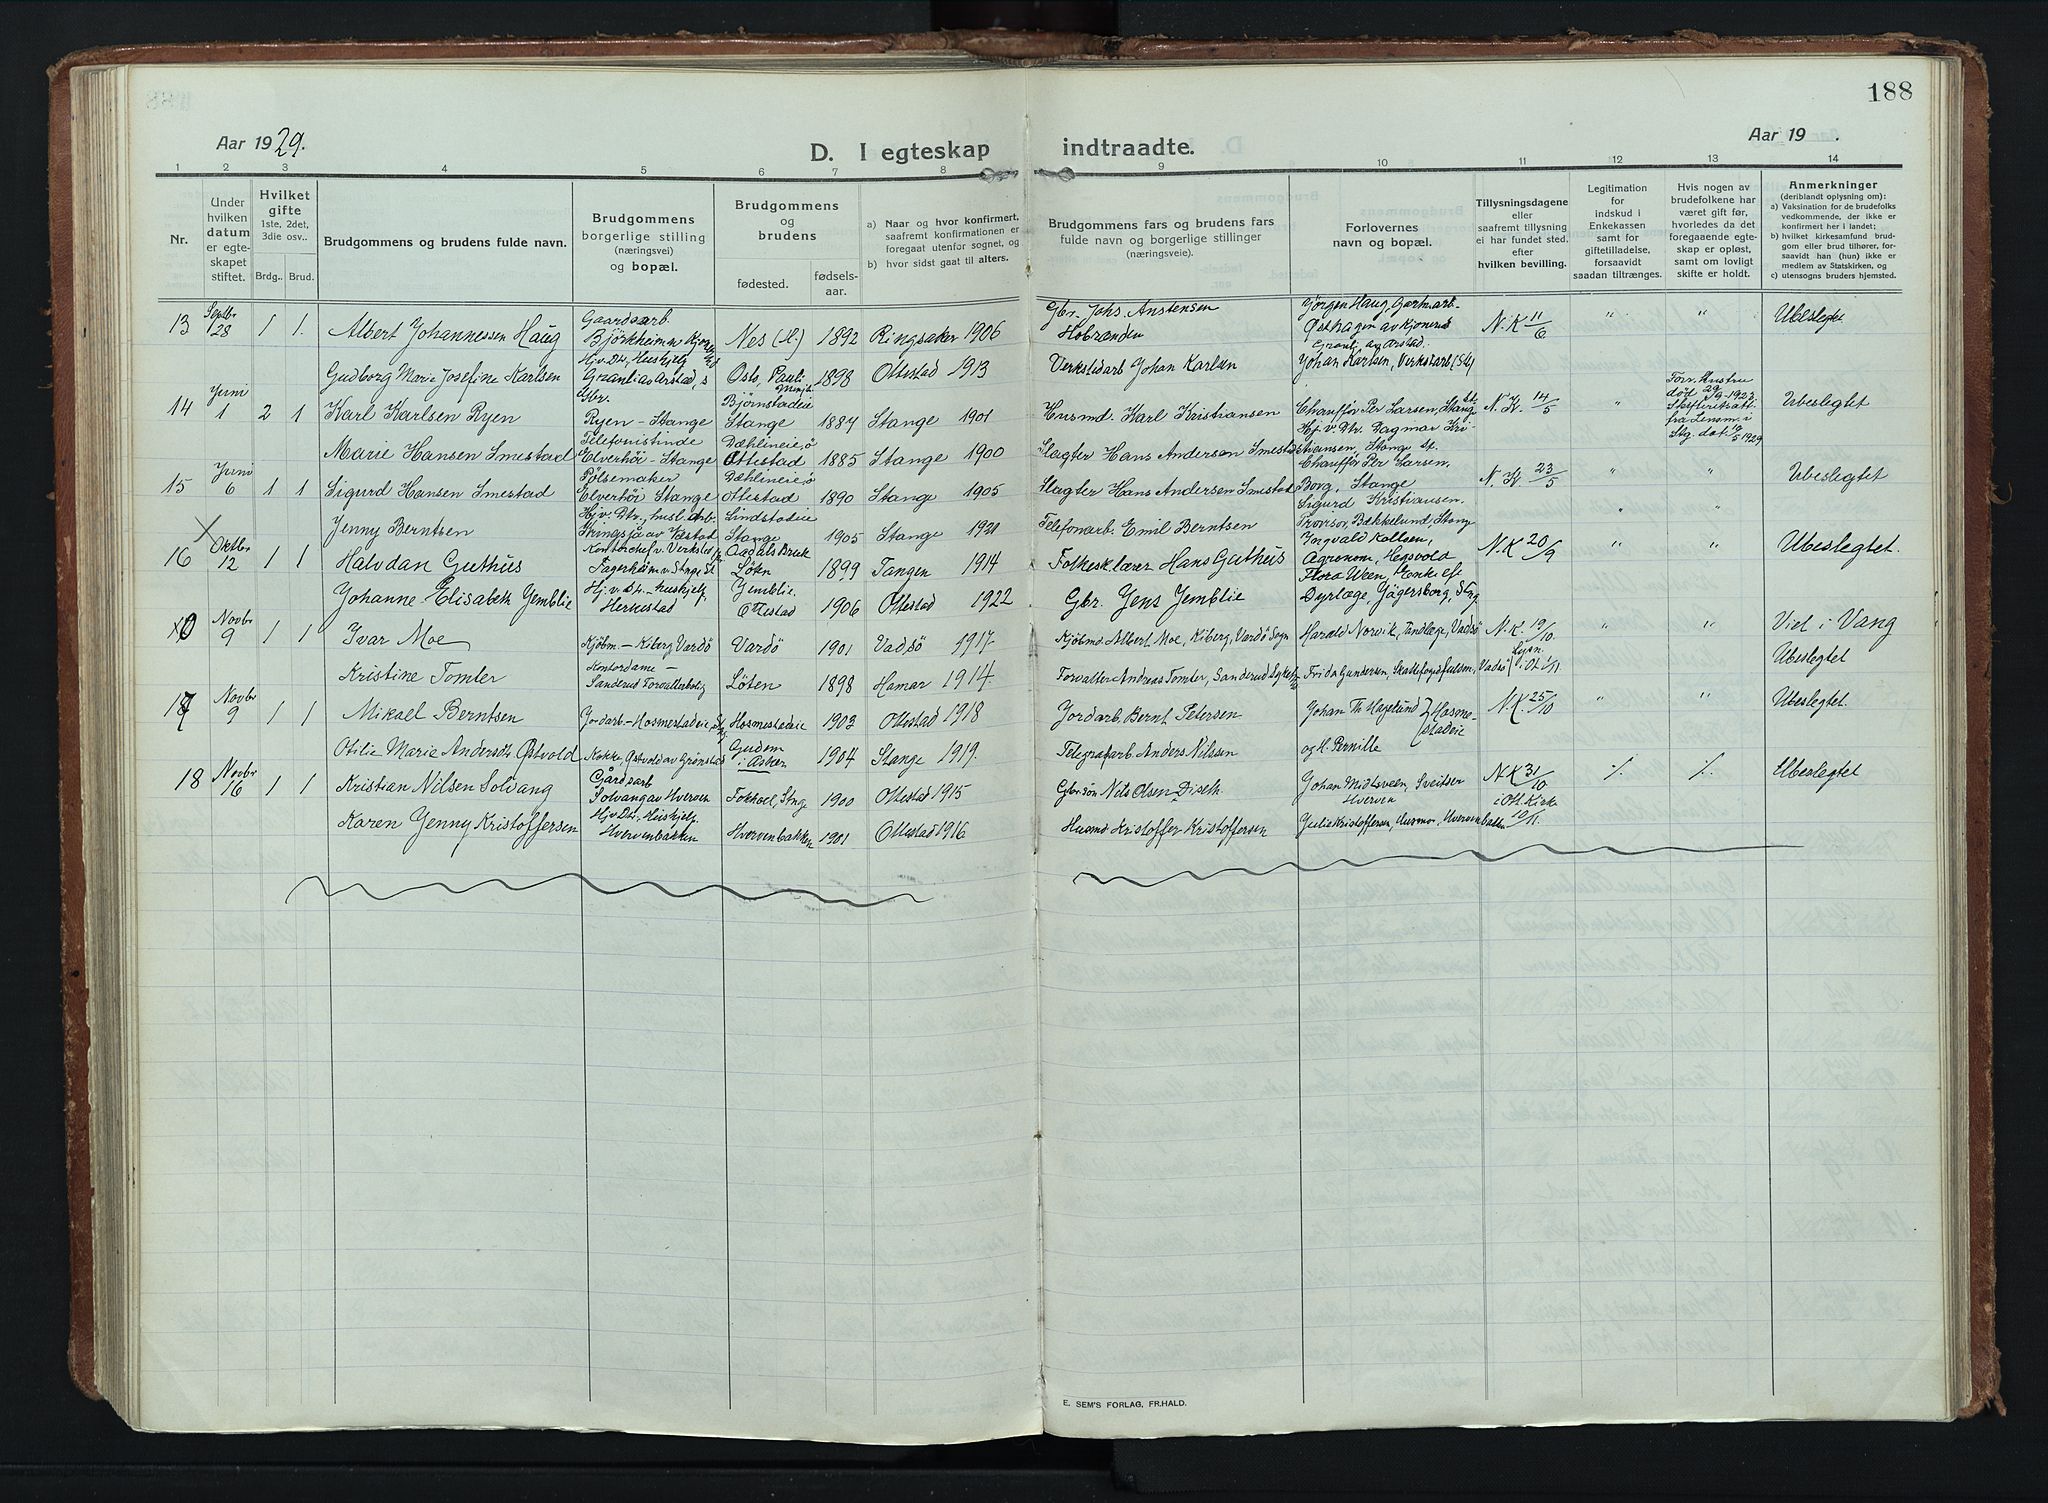 188
Aar 1929.
Aar 19 .
D. I egteskap indtraadte.
1 2 3 4 5 6 7 8 9 10 11 12 13 14
Nr.
Under hvilken datum er egteskapet stiftet.
Hvilket gifte
1ste, 2det, 3die osv..
Brdg. Brud.
Brudgommens og brudens fulde navn.
Brudgommens borgerlige stilling (næringsvei) og bopæl.
Brudgommens og brudens
fødested. fødselsaar.
a) Naar og hvor konfirmert, saafremt konfirmationen er foregaat utenfor sognet, og
b) hvor sidst gaat til alters.
Brudgommens fars og brudens fars fulde navn og borgerlige stillinger (næringsveie).
Forlovernes navn og bopæl.
Tillysningsdagene eller saafremt tillysning ei har fundet sted. efter hvilken bevilling.
Legitimation for indskud i Enkekassen samt for giftetilladelse, forsaavidt saadan tiltrænges.
Hvis nogen av brudefolkene har været gift før, hvorledes da det foregaaende egteskap er opløst, samt om lovligt skifte er holdt.
Anmerkninger (deriblandt oplysning om):
a) Vaksination for de brudefolks vedkommende, der ikke er konfirmert her i landet;
b) hvilket kirkesamfund brudgom eller brud tilhører, forsaavidt han (hun) ikke er medlem av Statskirken, og
c) utensogns bruders hjemsted.
13 Septbr 28 1 1. Albert Johannessen Haug Gaardsarb. Björkheim Nes (H.) 1892 Ringsaker 1906 Gbr. Johs. Anstensen Jörgen Haug, N.K 11/6 " " Ubeslegtet
Gudborg Marie Josefine Karlsen Hjv. Dtr., Hushjelp Oslo, Pauli Menigh. 1898 Ottestad 1913 Verkstedarb Johan Karlsen Johan Karlsen, Verkstarb (Stg)
14 Juni 1 2 1 Karl Karlsen Ryen Gbr. Ryen - Stange Bjørnstadeie Stange 1884 Stange 1901 Husmd. Karl Kristiansen Chauffør Per Larsen, N.K. 14/5 " Ubeslegtet
Marie Hansen Smestad Telefonistinde Elverhöi - Stange Dæhlineie, Ottestad 1885 Stange 1900 Slagter Hans Andersen Smestad Hj.v. Dtr. Dagmar Kristiansen, Stange St.
15 Juni 6 1 1 Sigurd Hansen Smestad Pølsemaker Elverhöi Stange Dæhlineie, Ottestad 1890 Stange 1905 Slagter Hans Andersen Smestad Chauffør Per Larsen, Borg, Stange N.K 23/5 " " Ubeslegtet
Jenny Berntsen Hjv. Dtr., husl. arb. Lindstadeie Stange 1905 Stange 1920 Telefonarb. Emil Berntsen Sigurd Kristiansen, Bækkelund, Stange
16 Oktbr 12 1 1 Halvdan Guthus Kontorchef v. Verksted Fagerheim v. Stnge St Aadals Bruk Løkn 1899 Tangen 1914 Folkesk.lærer Hans Guthus Ingvald Kollsen, Agronom, Hegsvold N.K 20/9 " " Ubeslegtet.
Johanne Elisabeth Jemblie Hj.v. Dt. - huskjelp, Herkestad Jemblie, Ottestad 1906 Ottestad 1922 Gbr. Jens Jemblie Flora Ween, Enke ef Dyrlæge, Jägersborg, Stng
Novbr 9 1 1 Ivar Moe Kjöbm. - Kiberg Vardö Vardö 1901 Vadsö 1917 Kjöbmd Albert Moe, Kiberg, Vardö Sogn Harald Norvik, Tandlæge, Vadsö N.K. 19/10. " " Viet i Vang
Kristine Tomter Kontordame - Sanderud Forvalterbolig Löten 1898 Hamar 1914 Forvalter Andreas Tomter, Sanderud Sykeh. Frida Gundersen, Skattefogdfuldm., Vadsö Ubeslegtet
17 Novbr 9 1 1 Mikael Berntsen Jordarb - Hosmestadeie, Hosmestadeie 1903 Ottestad 1918 Jordarb. Bernt Petersen Johan Th Hagelund N.K. 25/10 " " Ubeslegtet.
Otilie Marie Andersdt. Östvold Kokke, Östvold av Grönstad Gudem i Asker 1904 Stange 1919. Telegrafarb. Anders Nilssen og H. Pernille Hosmestadeie
18 Novbr 16 1 1 Kristian Nilsen Solvang Gårdsarb Solvang av Hverven Fokhoel, Stng 1900 Ottestad 1915 Gbr.sön Nils Olsen Diseth Johan Midtsveen, Sveitser Hverven N.K 31/10 i Ott. Kirke ./. ./. Ubeslegtet
Karen Jenny Kristoffersen Hjv Dtr, Huskjelp, Hvervenbakken Hvervenbakken 1901 Ottestad 1916 Husmd Kristoffer Kristoffersen Julia Kristoffersen, Husmor, Hvervenbakken 10/11.
E. SEM'S FORLAG, FR.HALD.